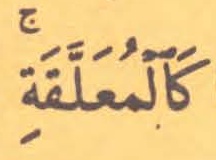 كَٱلْمُعَلَّقَةِۚ